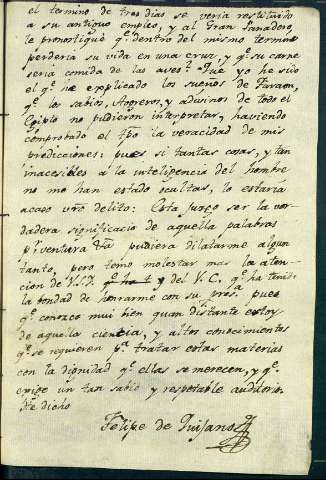 el termino de tres dias se veria restituido
a su antiguo empleo, y al Gran Panadero,
le pronostiqué qe dentro del mismo termino
perderia su vida en una cruz, y qe su carne
seria comida de las aves? Qué yo he sido
el qe he explicado los sueños de Faraon,
qe los sabios, Agoreros, y adivinos de todo el
Egipto no pudieron interpretar, haviendo
comprobado el tpo la veracidad de mis
predicciones: pues si tantas cosas, y tan
inacesibles a la inteligencia del hombre
no me han estado ocultas, lo estaria
acaso vro delito: Esta juzgo ser la ver
dadera significacio de aquella palabras
pr ventura &a pudiera dilatarme algun
tanto, pero temo molestar mas la aten-
cion de V.S.I. y del V.C. qe ha tenido
la bondad de honrarme con su presa. pues
qe conozco mui bien quan distante estoy
de aquella ciencia, y altos conocimientos
qe se requieren pa tratar estas materias
con la dignidad qe ellas se merecen, y qe
exige un tan sabio y respetable auditorio
He dicho
Felipe de Quisano